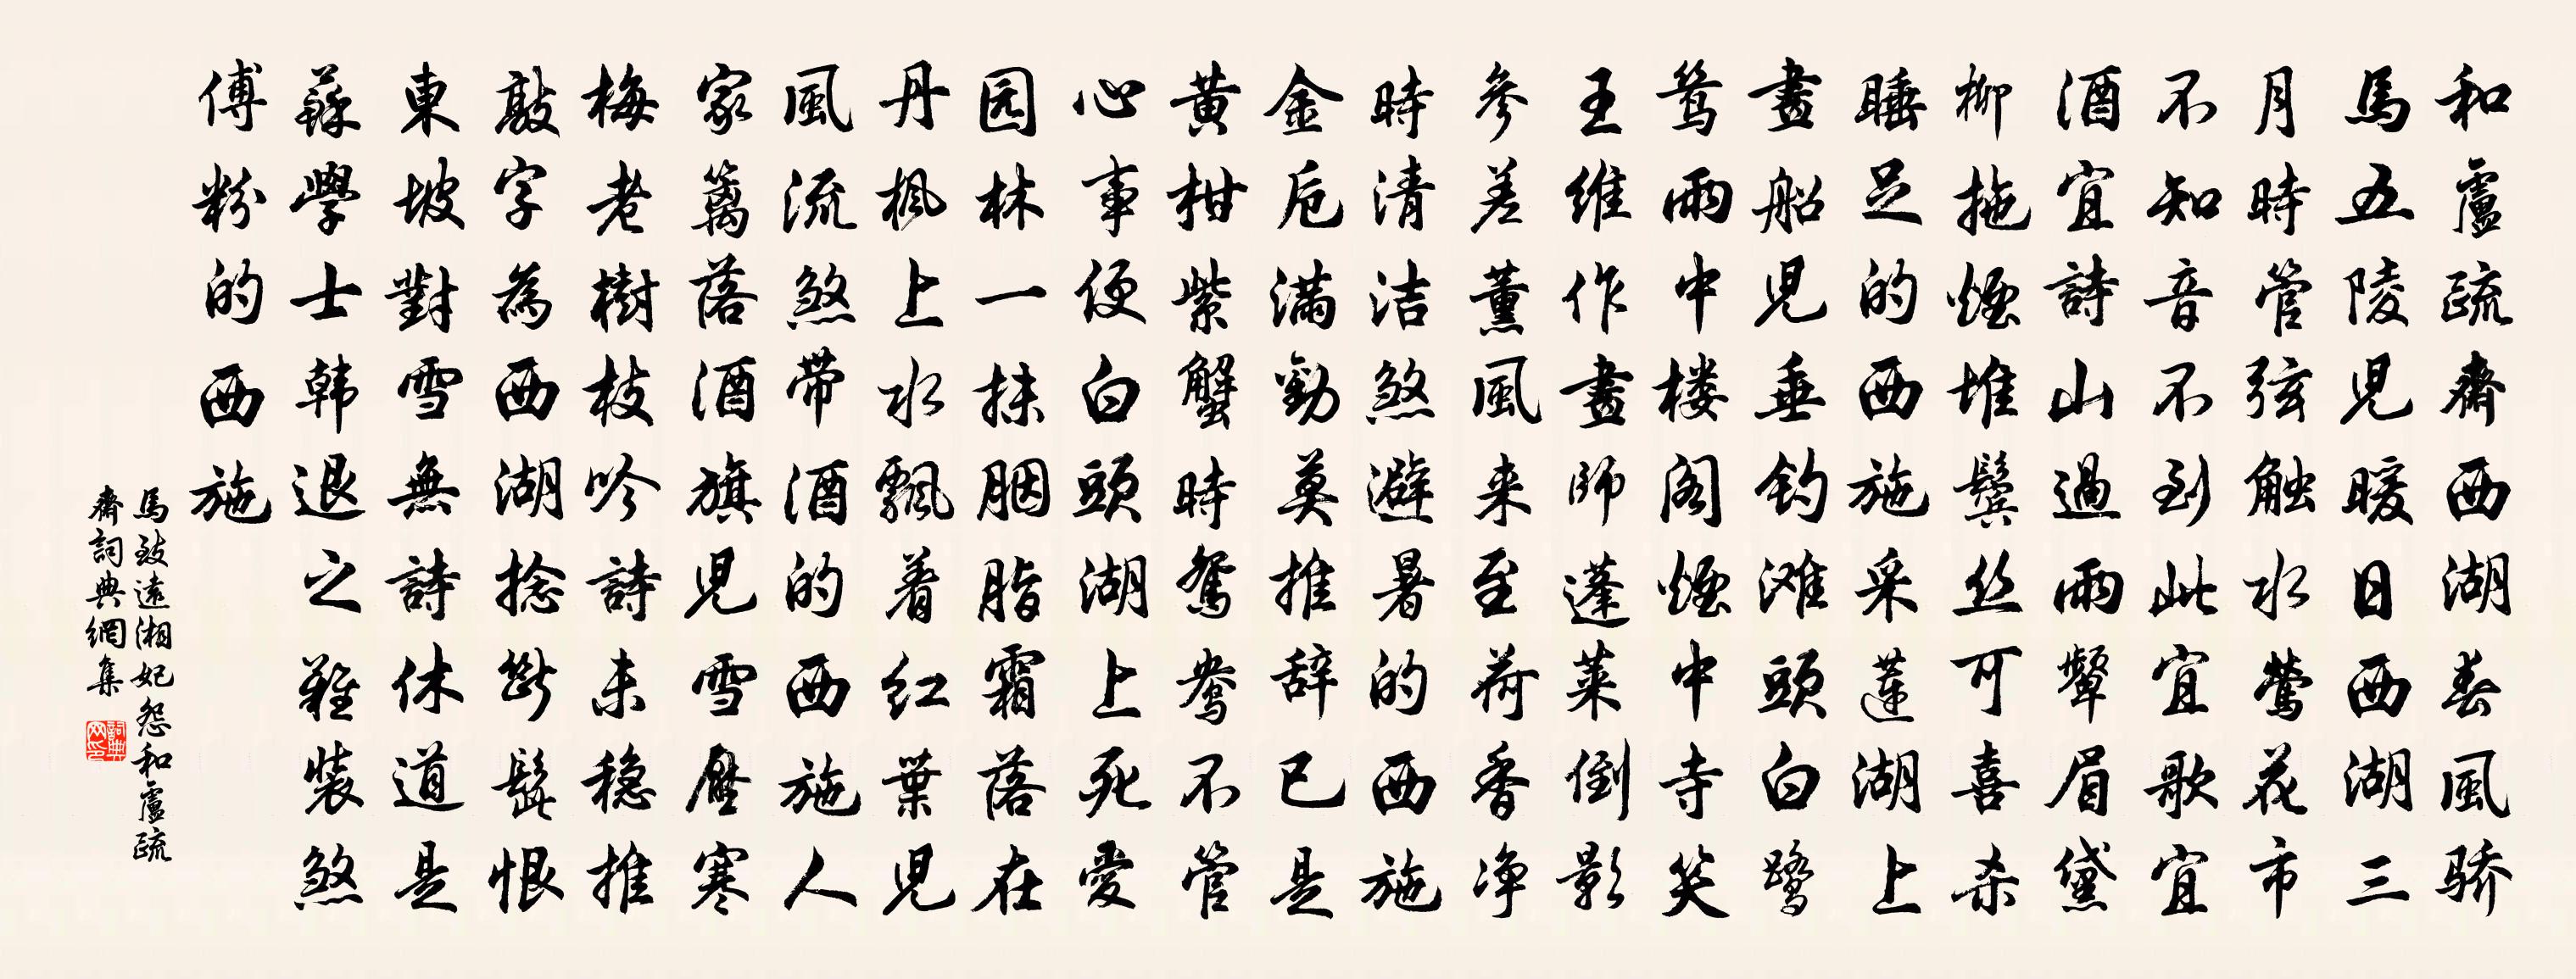 和盧疏齋西湖春風骄
馬五陵児暖日西湖三
月時管弦触水鶯花市
不知音不到此宜歌宜
酒宜詩山過雨颦眉黛
柳拖煙堆鬓丝可喜杀
睡足的西施采蓮湖上
畫船児垂钓滩頭白鹭
鸶雨中楼阁煙中寺笑
王維作畫師蓬莱倒影
參差薰風来至荷香净
時清洁煞避暑的西施
金卮满勸莫推辞已是
黄柑紫蟹時鸳鸯不管
心事便白頭湖上死愛
园林一抹胭脂霜落在
丹枫上水飄着红葉児
風流煞带酒的西施人
家篱落酒旗児雪壓寒
梅老樹枝吟詩未稳推
敲字為西湖捻断髭恨
東坡對雪無詩休道是
蘇學士韩退之難装煞
傅粉的西施
馬致遠湘妃怨和盧疏
齋詞典網集
詞典网印